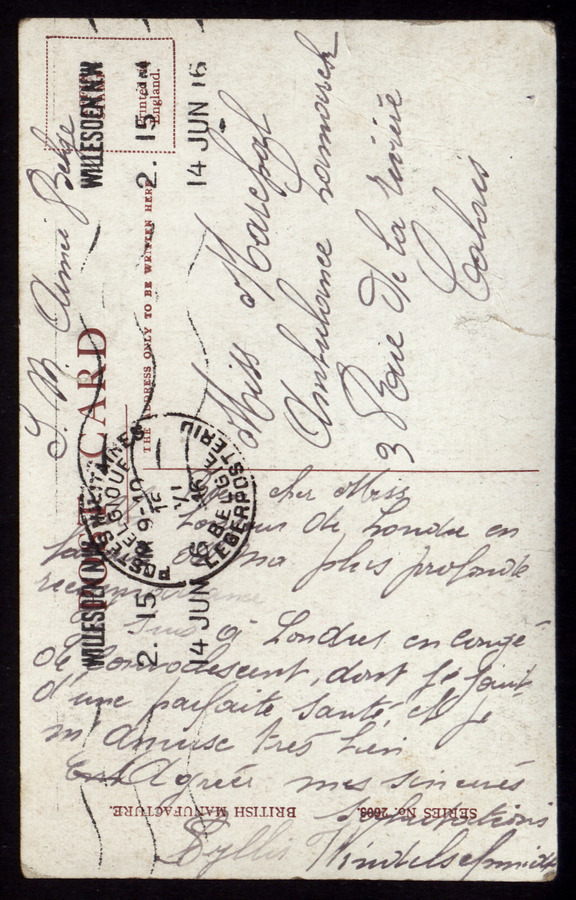 POST CARD
THE ADDRESS ONLY TO BE WRITTEN HERE
Printed in
England.
S. M. Armée Belge
WILLESDEN NW
2. 15
14 JUN 16
WILLESDEN NW
2. 15
14 JUN 16
POSTES MILITAIRES
BELGIQUE
9-10
16
VI
16
BELGIË
LEGERPOSTERIJ
Miss Marechal
Ambulance
3 Rue de la rivière
Calais
cher Miss
de Londre en
ma plus profonde
Suis à Londres en congé
de convalescent, dont je jouit
d'une parfaite santé, et je
m'amuse très bien
Agréer mes sincères
Salutations
SERIES No. 2608.
BRITISH MANUFACTURE.